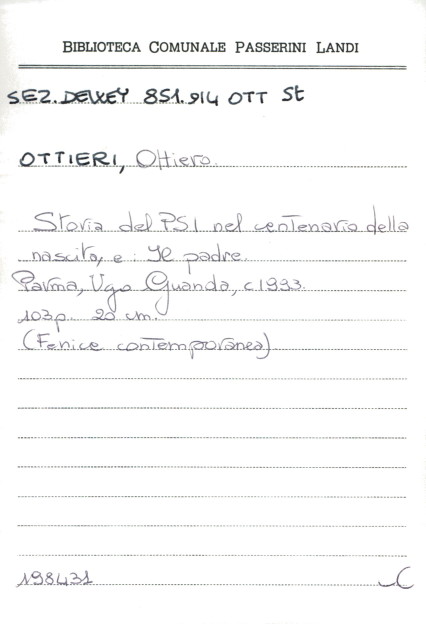 BIBLIOTECA COMUNALE PASSERINI LANDI
SEZ. DEWEY 851.914 OTT St
OTTIERI, Ottiero.
Storia del PSI nel centenario della
nascita, e : Il padre.
Parma, Ugo Guanda, c1993.
103p. 20 cm.
(Fenice contemporanea)
198431